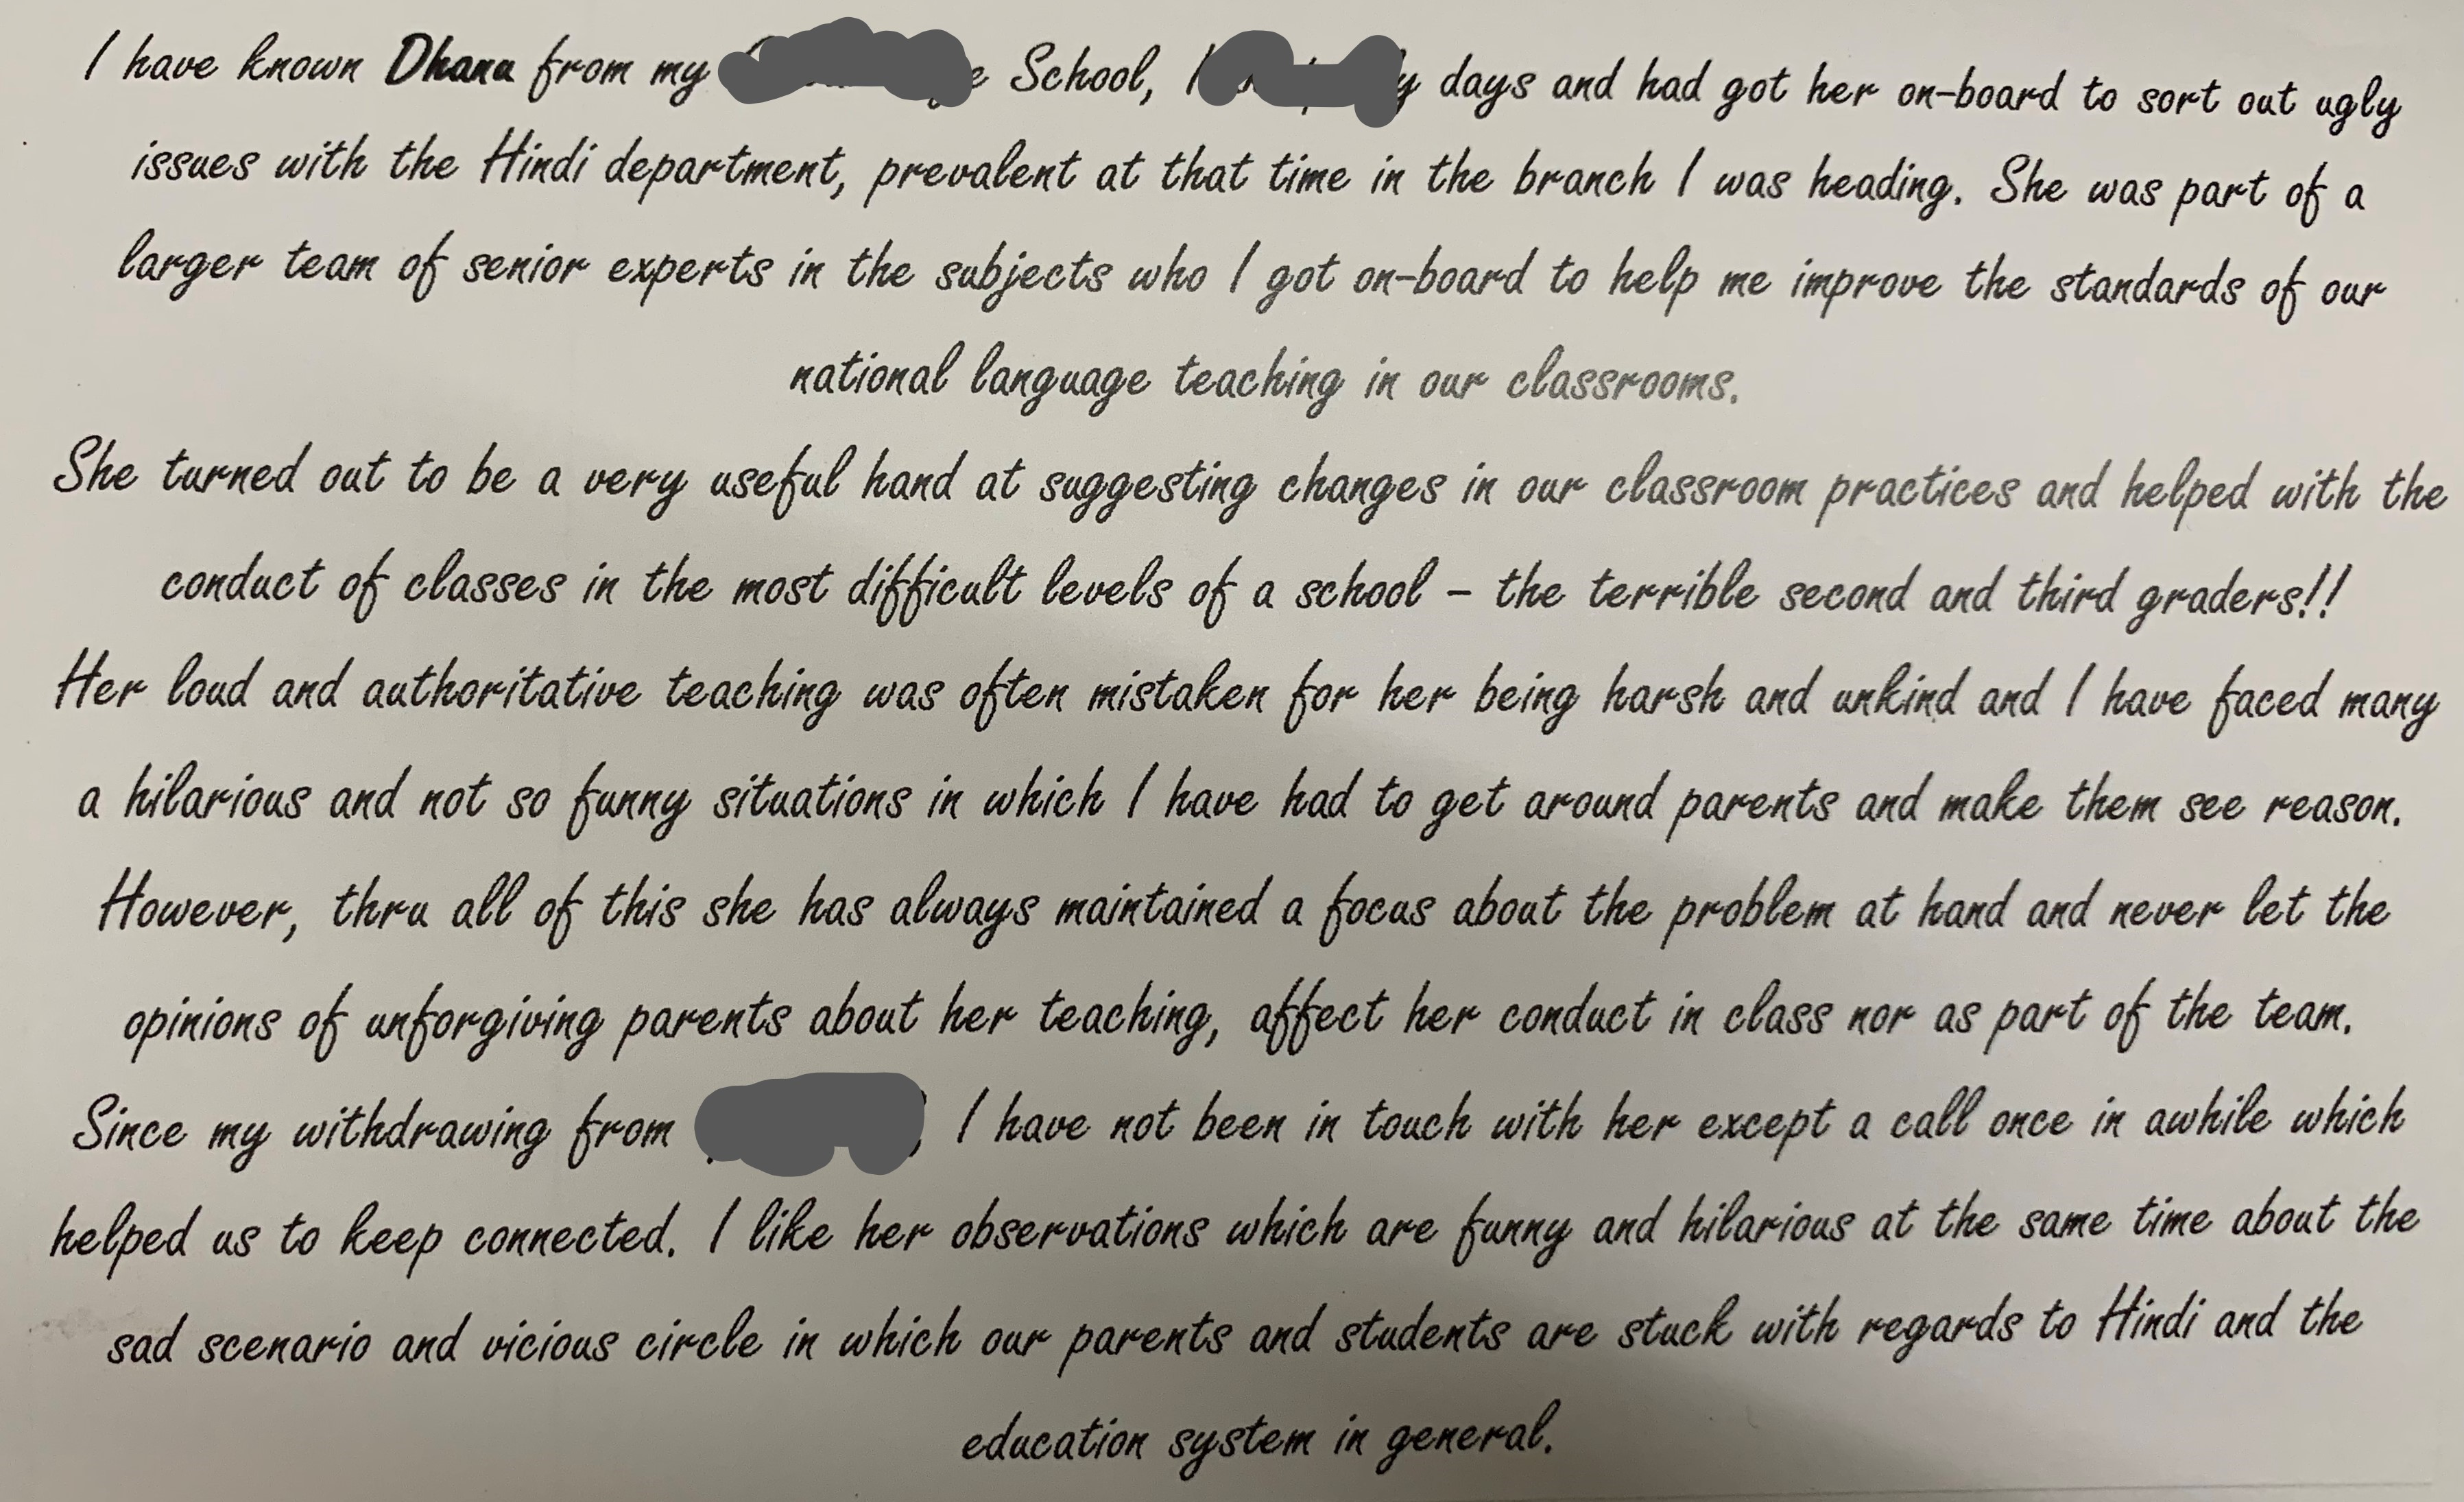 I have known Dhana from my School, days and had got her on-board to sort out ugly
issues with the Hindi department, prevalent at that time in the branch I was heading. She was part of a
larger team of senior experts in the subjects who I got on-board to help me improve the standards of our
national language teaching in our classrooms.
She turned out to be a very useful hand at suggesting changes in our classroom practices and helped with the
conduct of classes in the most difficult levels of a school - the terrible second and third graders!!
Her loud and authoritative teaching was often mistaken for her being harsh and unkind and I have faced many
a hilarious and not so funny situations in which I have had to get around parents and make them see reason.
However, thru all of this she has always maintained a focus about the problem at hand and never let the
opinions of unforgiving parents about her teaching, affect her conduct in class nor as part of the team.
Since my withdrawing from I have not been in touch with her except a call once in awhile which
helped us to keep connected. I like her observations which are funny and hilarious at the same time about the
sad scenario and vicious circle in which our parents and students are stuck with regards to Hindi and the
education system in general.